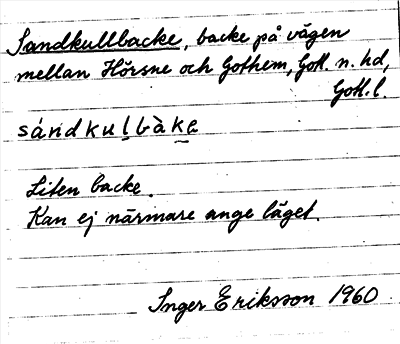 Sandkullbacke, backe på vägen
mellan Hörsne och Gothem, Gotl. n. hd,
Gotl. l.
sándkul̲bàka̲
Liten backe.
Kan ej närmare ange läget.
Inger Eriksson 1960